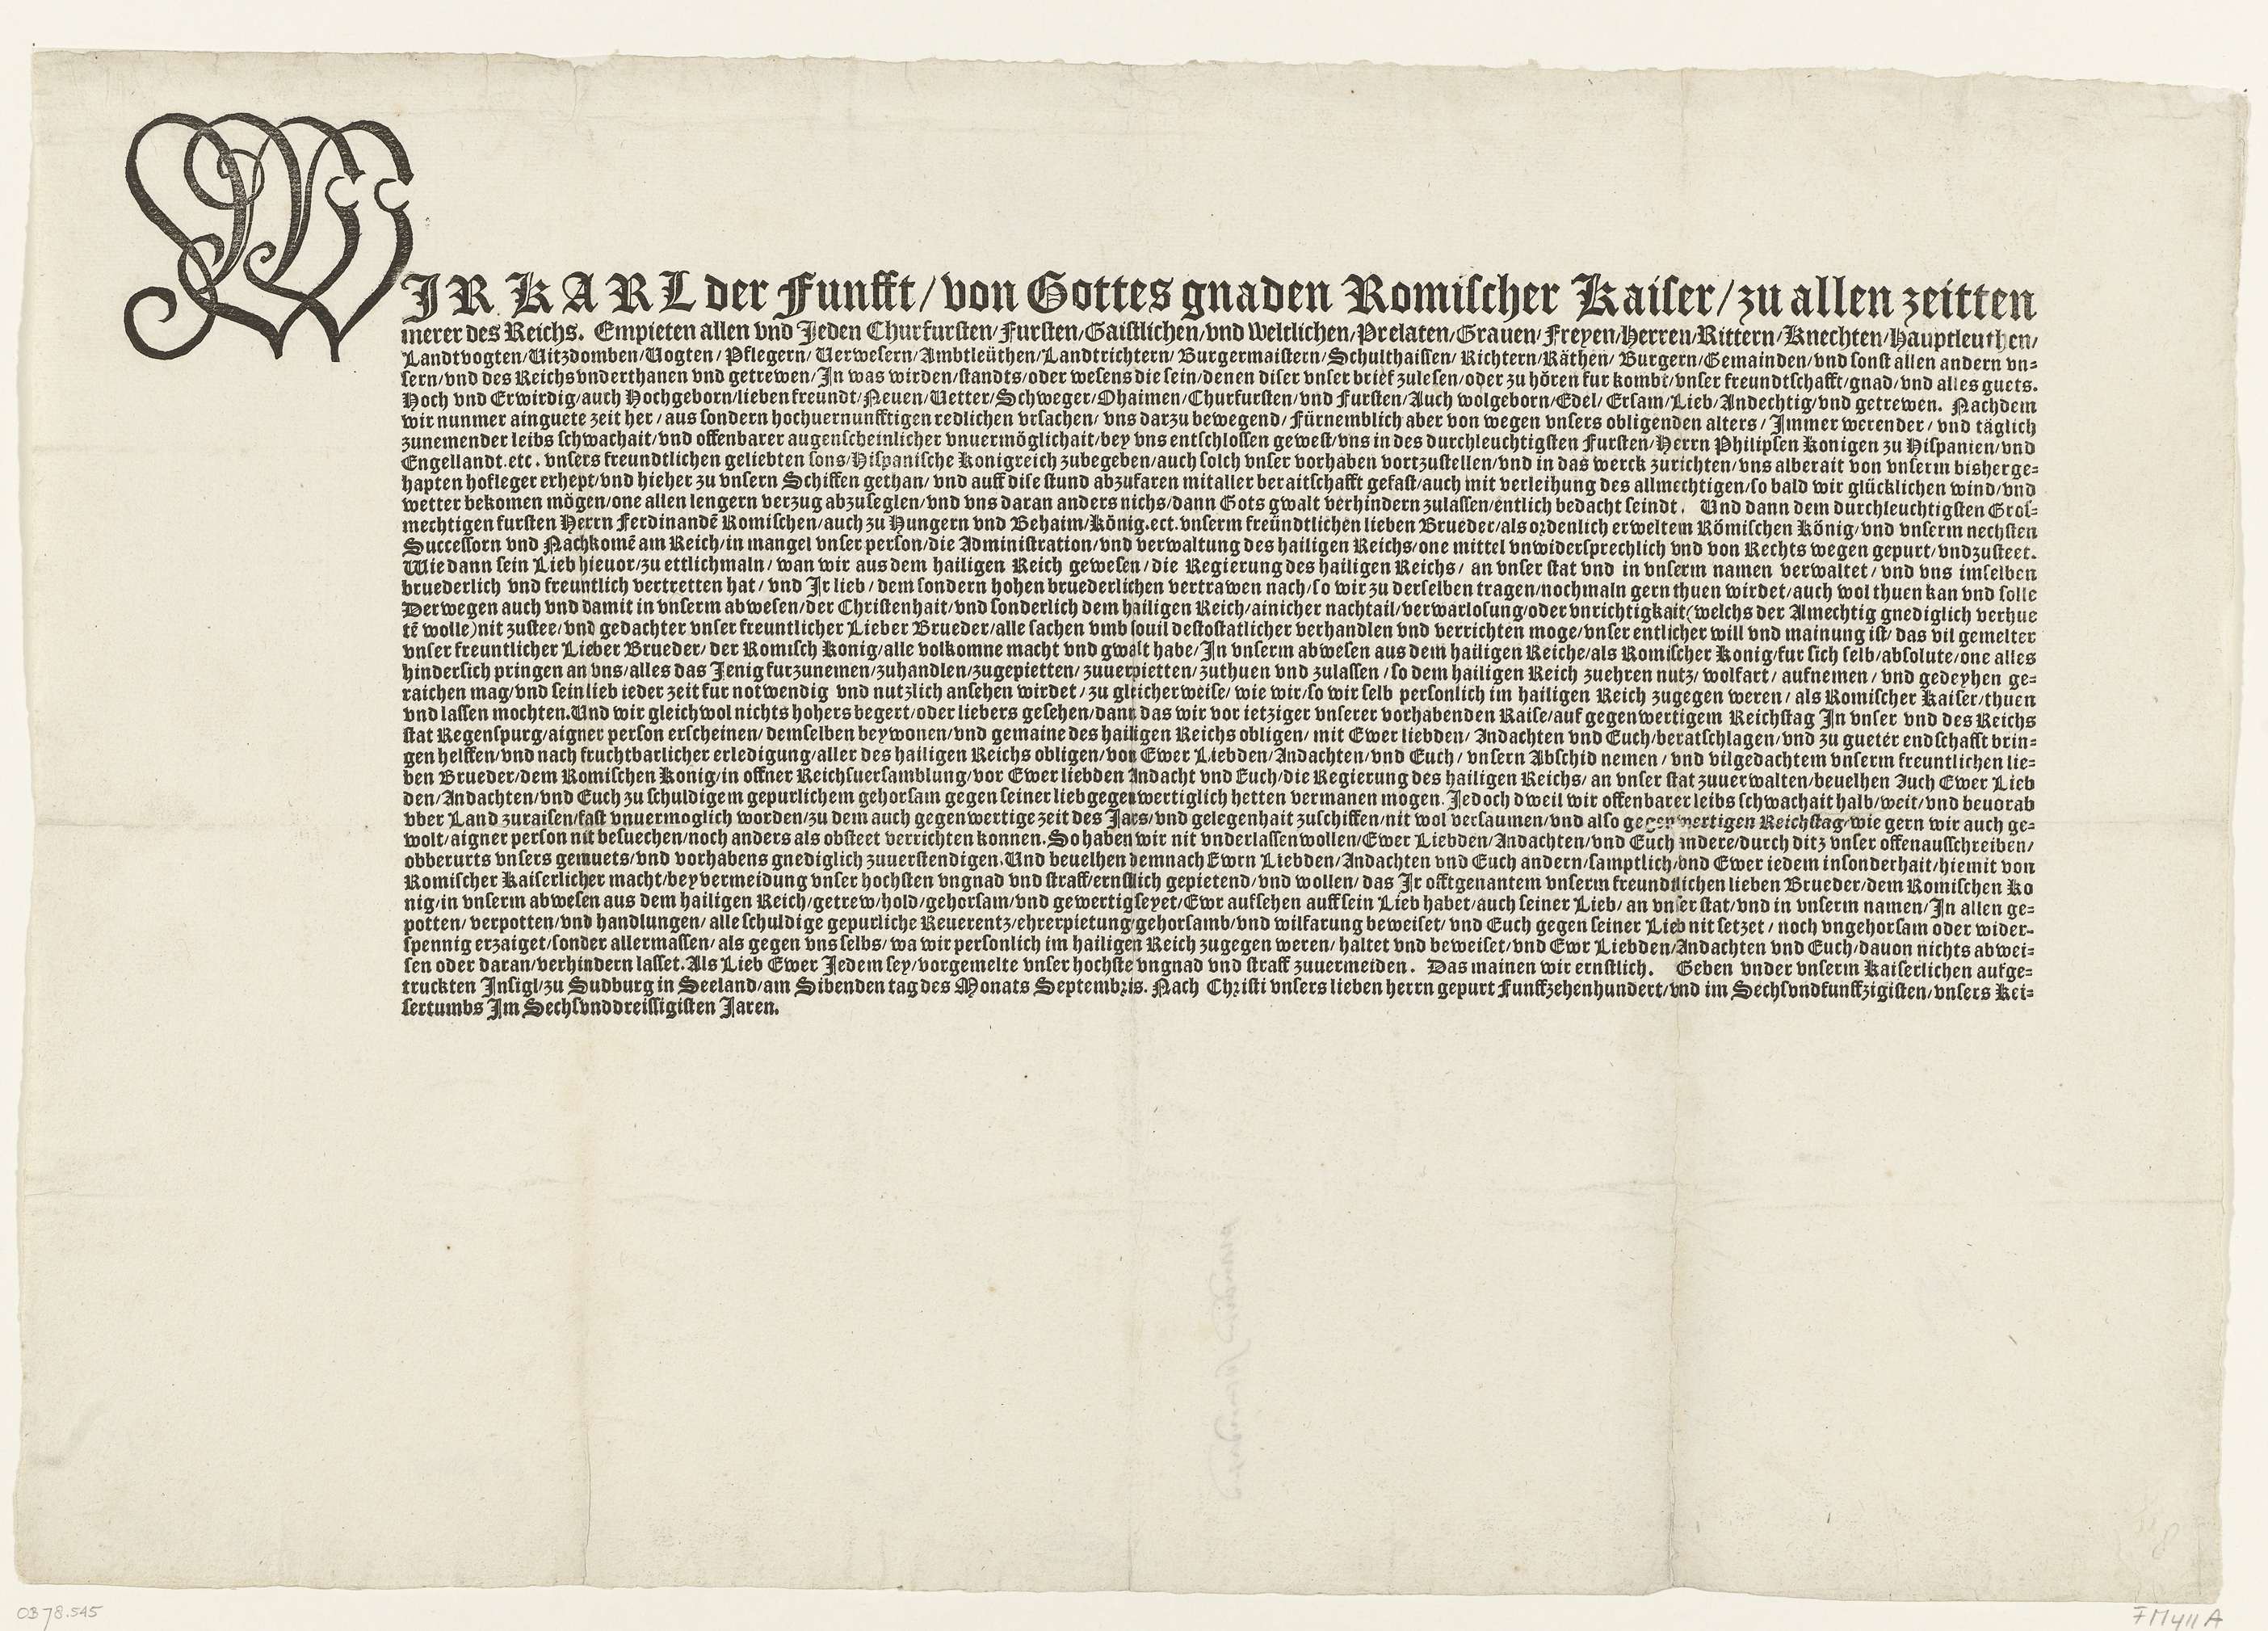 WIR KARL der Funfft/von Gottes gnaden Romischer Kaiser/zu allen zeitten
merer des Reichs. Empieten allen vnd Jeden Churfursten/Fursten/Gaistlichen/vnd weltlichen/Prelaten/Grauen/Freyen/Herren/Rittern/Knechten/Hauptleuthen/
Landtvogten/Uitzdomben/Uogten/Pflegern/Uerwesern/Ambtleüthen/Landtrichtern/Burgermaistern/Schulthaissen/Richtern/Räthen/Burgern/Gemainden/vnd sonst allen andern vn=
sern/vnd des Reichs vnderthanen vnd getrewen/In was wirden/standts/oder wesens die sein/denen diser vnser brief zulesen/oder zu hören fur kombt/vnser freundtschafft/gnad/vnd alles guets.
Hoch vnd Erwirdig/auch Hochgeborn/lieben freündt/Neuen/Uetter/Schweger/Ohaimen/Churfursten/vnd Fursten/Auch wolgeborn/Edel/Ersam/Lieb/Andechtig/vnd getrewen. Nachdem
wir nunmer ainguete zeit her/aus sondern hochuernunfftigen redlichen vrsachen/vns darzu bewegend/Fürnemblich aber von wegen vnsers obligenden alters/Immer werender/vnd täglich
zunemender leibs schwachait/vnd offenbarer augenscheinlicher vnuermöglichait/bey vns entschlossen gewest/vns in des durchleuchtigsten Fursten/Herrn Philipsen Konigen zu Hispanien/vnd
Engellandt.etc. vnsers freundtlichen geliebten sons/Hispanische Konigreich zubegeben/auch solch vnser vorhaben vortzustellen/vnd in das werck zurichten/vns alberait von vnserm bisherge=
hapten hofleger erhept/vnd hieher zu vnsern Schiffen gethan/vnd auff dise stund abzufaren mitaller beraitschafft gefast/auch mit verleihung des allmechtigen/so bald wir glücklichen wind/vnd
wetter bekomen mögen/one allen lengern verzug abzuseglen/vnd vns daran anders nichs/dann Gots gwalt verhindern zulassen/entlich bedacht seindt. Und dann dem durchleuchtigsten Gros=
mechtigen fursten Herrn Ferdinandē Romischen/auch zu Hungern vnd Behaim/König.ect.vnserm freündtlichen lieben Brueder/als ordenlich erweltem Römischen König/vnd vnserm nechsten
Successorn vnd Nachkomē am Reich/in mangel vnser person/die Administration/vnd verwaltung des hailigen Reichs/one mittel vnwidersprechlich vnd von Rechts wegen gepurt/vndzusteet.
Wie dann sein Lieb hieuor/zu ettlichmaln/wan wir aus dem hailigen Reich gewesen/die Regierung des hailigen Reichs/an vnser stat vnd in vnserm namen verwaltet/vnd vns imselben
bruederlich vnd freuntlich vertretten hat/vnd Ir lieb/dem sondern hohen bruederlichen vertrawen nach/so wir zu derselben tragen/nochmaln gern thuen wirdet/auch wol thuen kan vnd solle
Derwegen auch vnd damit in vnserm abwesen/der Christenhait/vnd sonderlich dem hailigen Reich/ainicher nachtail/verwarlosung/oder vnrichtigkait(welchs der Almechtig gnediglich verhue
tē wolle)nit zustee/vnd gedachter vnser freuntlicher Lieber Brueder/alle sachen vmb souil destostatlicher verhandlen vnd verrichten moge/vnser entlicher will vnd mainung ist/das vil gemelter
vnser freuntlicher Lieber Brueder/der Romisch Konig/alle volkomne macht vnd gwalt habe/In vnserm abwesen aus dem hailigen Reiche/als Romischer Konig/fur sich selb/absolute/one alles
hindersich pringen an vns/alles das Jenig furzunemen/zuhandlen/zugepietten/zuuerpietten/zuthuen vnd zulassen/so dem hailigen Reich zuehren nutz/wolfart/aufnemen/vnd gedeyhen ge=
raichen mag/vnd sein lieb ieder zeit fur notwendig vnd nutzlich ansehen wirdet/zu gleicherweise/wie wir/so wir selb personlich im hailigen Reich zugegen weren/als Romischer Kaiser/thuen
vnd lassen mochten.Und wir gleichwol nichts hohers begert/oder liebers gesehen/dann das wir vor ietziger vnserer vorhabenden Raise/auf gegenwertigem Reichstag In vnser vnd des Reichs
stat Regenspurg/aigner person erscheinen/demselben beywonen/vnd gemaine des hailigen Reichs obligen/mit Ewer liebden/Andachten vnd Euch/beratschlagen/vnd zu gueter endschafft brin=
gen helffen/vnd nach fruchtbarlicher erledigung/aller des hailigen Reichs obligen/von Ewer Liebden/Andachten/vnd Euch/vnsern Abschid nemen/vnd vilgedachtem vnserm freuntlichen lie=
ben Brueder/dem Romischen Konig/in offner Reichsuersamblung/vor Ewer liebden Andacht vnd Euch/die Regierung des hailigen Reichs/an vnser stat zuuerwalten/beuelhen Auch Ewer Lieb
den/Andachten/vnd Euch zu schuldigem gepurlichem gehorsam gegen seiner lieb gegenwertiglich hetten vermanen mogen.Jedoch dweil wir offenbarer leibs schwachait halb/weit/vnd beuorab
vber Land zuraisen/fast vnuermoglich worden/zu dem auch gegenwertige zeit des Jars/vnd gelegenhait zuschiffen/nit wol versaumen/vnd also gegenwertigen Reichstag/wie gern wir auch ge=
wolt/aigner person nit besuechen/noch anders als obsteet verrichten konnen.So haben wir nit vnderlassen wollen/Ewer Liebden/Andachten/vnd Euch andere/durch ditz vnser offenausschreiben/
obberurts vnsers gemuets/vnd vorhabens gnediglich zuuerstendigen.Und beuelhen demnach Ewrn Liebden/Andachten vnd Euch andern/samptlich/vnd Ewer iedem insonderhait/hiemit von
Romischer Kaiserlicher macht/bey vermeidung vnser hochsten vngnad vnd straff/ernstlich gepietend/vnd wollen/das Ir offtgenantem vnserm freundtlichen lieben Brueder/dem Romischen Ko
nig/in vnserm abwesen aus dem hailigen Reich/getrew/hold/gehorsam/vnd gewertig seyet/Ewr aufsehen auff sein Lieb habet/auch seiner Lieb/an vnser stat/vnd in vnserm namen/In allen ge=
potten/verpotten/vnd handlungen/alle schuldige gepurliche Reuerentz/ehrerpietung/gehorsamb/vnd wilfarung beweiset/vnd Euch gegen seiner Lieb nit setzet/noch vngehorsam oder wider=
spennig erzaiget/sonder allermassen/als gegen vns selbs/wa wir personlich im hailigen Reich zugegen weren/haltet vnd beweiset/vnd Ewr Liebden/Andachten vnd Euch/dauon nichts abwei=
sen oder daran/verhindern lasset.Als Lieb Ewer Jedem sey/vorgemelte vnser hochste vngnad vnd straff zuuermeiden. Das mainen wir ernstlich. Geben vnder vnserm Kaiserlichen aufge=
truckten Insigl/zu Sudburg in Seeland/am Sibenden tag des Monats Septembris. Nach Christi vnsers lieben herrn gepurt Funffzehenhundert/vnd im Sechsvndfunffzigisten/vnsers Kei=
sertumbs Im Sechsvnddreissigisten Jaren.
OB 78.545
FM411A